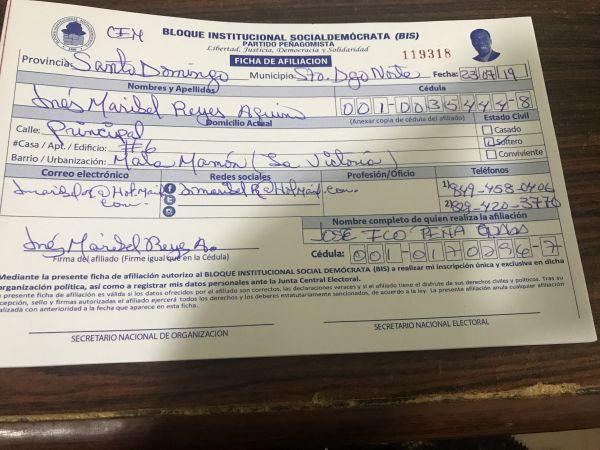 CEN
BLOQUE INSTITUCIONAL SOCIALDEMÓCRATA (BIS)
PARTIDO PEÑAGOMISTA
Libertad, Justicia, Democracia y Solidaridad
FICHA DE AFILIACION
119318
Provincia: Santo Domingo Municipio: Sto. Dgo Norte Fecha: 23/07/19
Nombres y Apellidos
Cédula
Inés Maribel Reyes Aquino
Domicilio Actual
(Anexar copia de cédula del afiliado)
Estado Civil
Calle: Principal
Casado
#Casa / Apt. / Edificio: #6
Soltero
Barrio / Urbanización: Mata Mamón (La Victoria)
Conviviente
Correo electrónico
Redes sociales
Profesión/Oficio
Teléfonos
1) 849-458-0406
2) 829-420-3770
Nombre completo de quien realiza la afiliación
JOSE FCO PEÑA
Inés Maribel Reyes A.
Firma del afiliado (Firme igual que en la Cédula)
Cédula: 001-0170286-7
Mediante la presente ficha de afiliación autorizo al BLOQUE INSTITUCIONAL SOCIAL DEMÓCRATA (BIS) a realizar mi inscripción única y exclusiva en dicha
organización política, así como a registrar mis datos personales ante la Junta Central Electoral.
presente ficha de afiliación es válida si los datos ofrecidos por el afiliado son correctos, las declaraciones veraces y si el afiliado tiene el disfrute de sus derechos civiles y políticos. Tras su
cepción, sello y firmas autorizadas el afiliado ejercerá todos los derechos y los deberes estatutariamente sancionados, de acuerdo a la ley. La presente afiliación anula cualquier afiliación
alizada con anterioridad a la fecha que aparece en esta ficha.
SECRETARIO NACIONAL DE ORGANIZACIÓN
SECRETARIO NACIONAL ELECTORAL